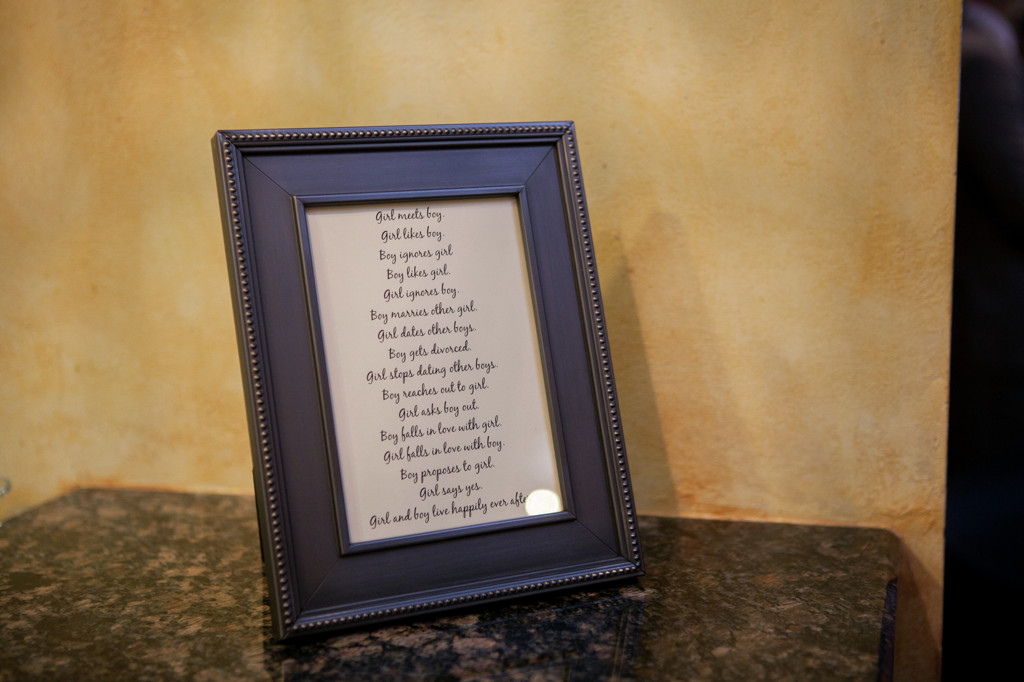 Girl meets boy.
Girl likes boy.
Boy ignores girl
Boy likes girl.
Girl ignores boy.
Boy marries other girl.
Girl dates other boys.
Boy gets divorced.
Girl stops dating other boys.
Boy reaches out to girl.
Girl asks boy out.
Boy falls in love with girl.
Girl falls in love with boy.
Boy proposes to girl.
Girl says yes.
Girl and boy live happily ever after